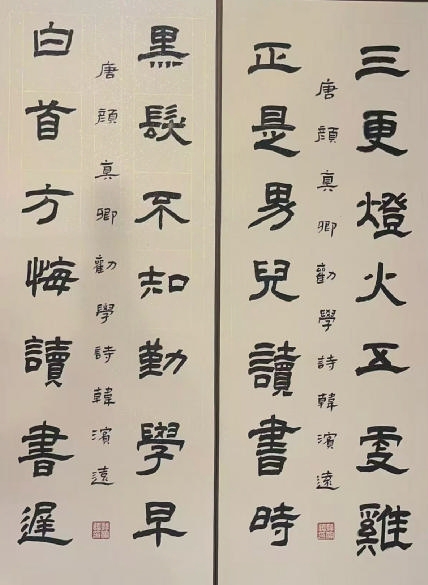 三更燈火五更雞
唐顏真卿勸學詩韓濱遠
正是男兒讀書時
黑髮不知勤學早
唐顏真卿勸學詩韓濱遠
白首方悔讀書遲